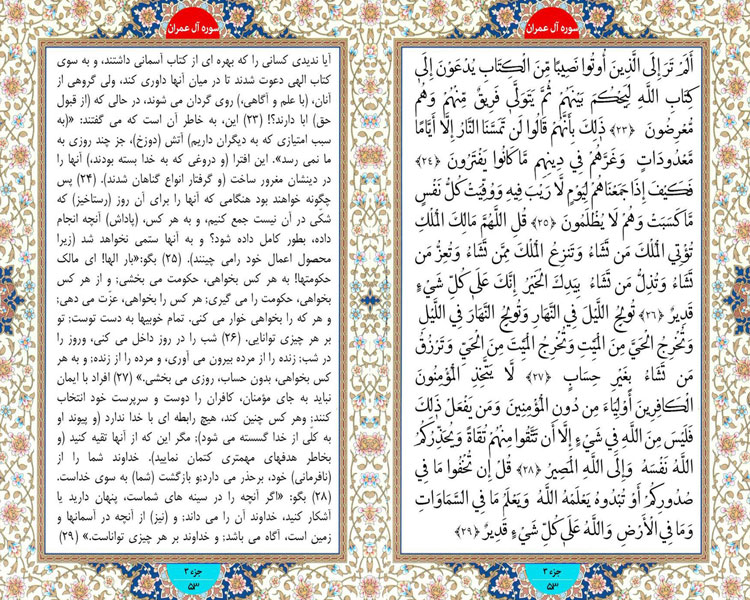 سوره آل عمران
أَلَمْ تَرَ إِلَى الَّذِينَ أُوتُوا نَصِيبًا مِّنَ الْكِتَابِ يُدْعَوْنَ إِلَىٰ
كِتَابِ اللَّهِ لِيَحْكُمَ بَيْنَهُمْ ثُمَّ يَتَوَلَّىٰ فَرِيقٌ مِّنْهُمْ وَهُم
مُّعْرِضُونَ ﴿۲۳﴾ ذَٰلِكَ بِأَنَّهُمْ قَالُوا لَن تَمَسَّنَا النَّارُ إِلَّا أَيَّامًا
مَّعْدُودَاتٍ وَغَرَّهُمْ فِي دِينِهِم مَّا كَانُوا يَفْتَرُونَ ﴿۲۴﴾
فَكَيْفَ إِذَا جَمَعْنَاهُمْ لِيَوْمٍ لَّا رَيْبَ فِيهِ وَوُفِّيَتْ كُلُّ نَفْسٍ
مَّا كَسَبَتْ وَهُمْ لَا يُظْلَمُونَ ﴿۲۵﴾ قُلِ اللَّهُمَّ مَالِكَ الْمُلْكِ
تُؤْتِي الْمُلْكَ مَن تَشَاءُ وَتَنزِعُ الْمُلْكَ مِمَّن تَشَاءُ وَتُعِزُّ مَن
تَشَاءُ وَتُذِلُّ مَن تَشَاءُ بِيَدِكَ الْخَيْرُ إِنَّكَ عَلَىٰ كُلِّ شَيْءٍ
قَدِيرٌ ﴿۲۶﴾ تُولِجُ اللَّيْلَ فِي النَّهَارِ وَتُولِجُ النَّهَارَ فِي اللَّيْلِ
وَتُخْرِجُ الْحَيَّ مِنَ الْمَيِّتِ وَتُخْرِجُ الْمَيِّتَ مِنَ الْحَيِّ وَتَرْزُقُ
مَن تَشَاءُ بِغَيْرِ حِسَابٍ ﴿۲۷﴾ لَّا يَتَّخِذِ الْمُؤْمِنُونَ
الْكَافِرِينَ أَوْلِيَاءَ مِن دُونِ الْمُؤْمِنِينَ وَمَن يَفْعَلْ ذَٰلِكَ
فَلَيْسَ مِنَ اللَّهِ فِي شَيْءٍ إِلَّا أَن تَتَّقُوا مِنْهُمْ تُقَاةً وَيُحَذِّرُكُمُ
اللَّهُ نَفْسَهُ وَإِلَى اللَّهِ الْمَصِيرُ ﴿۲۸﴾ قُلْ إِن تُخْفُوا مَا فِي
صُدُورِكُمْ أَوْ تُبْدُوهُ يَعْلَمْهُ اللَّهُ وَيَعْلَمُ مَا فِي السَّمَاوَاتِ
وَمَا فِي الْأَرْضِ وَاللَّهُ عَلَىٰ كُلِّ شَيْءٍ قَدِيرٌ ﴿۲۹﴾
جزء ۳
۵۳
سوره آل عمران
آیا ندیدی کسانی را که بهره ای از کتاب آسمانی داشتند، و به سوی
کتاب الهی دعوت شدند تا در میان آنها داوری کند، ولی گروهی از
آنان، (با علم و آگاهی،) روی گردان می شوند، در حالی که (از قبول
حق) ابا دارند؟! (۲۳) این، به خاطر آن است که می گفتند: «(به
سبب امتیازی که به دیگران داریم) آتش (دوزخ)، جز چند روزی به
ما نمی رسد». این افترا (و دروغی که به خدا بسته بودند،) آنها را
در دینشان مغرور ساخت (و گرفتار انواع گناهان شدند). (۲۴) پس
چگونه خواهند بود هنگامی که آنها را برای آن روز (رستاخیز) که
شکی در آن نیست جمع کنیم، و به هر کس، (پاداش) آنچه انجام
داده، بطور کامل داده شود؟ و به آنها ستمی نخواهد شد (زیرا
محصول اعمال خود رامی چینند). (۲۵) بگو:«بار الها! ای مالک
حکومتها! به هر کس بخواهی، حکومت می بخشی; و از هر کس
بخواهی، حکومت را می گیری; هر کس را بخواهی، عزّت می دهی;
و هر که را بخواهی خوار می کنی. تمام خوبیها به دست توست; تو
بر هر چیزی توانایی. (۲۶) شب را در روز داخل می کنی، وروز را
در شب; زنده را از مرده بیرون می آوری، و مرده را از زنده; و به هر
کس بخواهی، بدون حساب، روزی می بخشی.» (۲۷) افراد با ایمان
نباید به جای مؤمنان، کافران را دوست و سرپرست خود انتخاب
کنند; وهر کس چنین کند، هیچ رابطه ای با خدا ندارد (و پیوند او
به کلّی از خدا گسسته می شود); مگر این که از آنها تقیه کنید (و
بخاطر هدفهای مهمتری کتمان نمایید). خداوند شما را از
(نافرمانی) خود، برحذر می دارد;و بازگشت (شما) به سوی خداست.
(۲۸) بگو: «اگر آنچه را در سینه های شماست، پنهان دارید یا
آشکار کنید، خداوند آن را می داند; و (نیز) از آنچه در آسمانها و
زمین است، آگاه می باشد; و خداوند بر هر چیزی تواناست.» (۲۹)
جزء ۳
۵۳